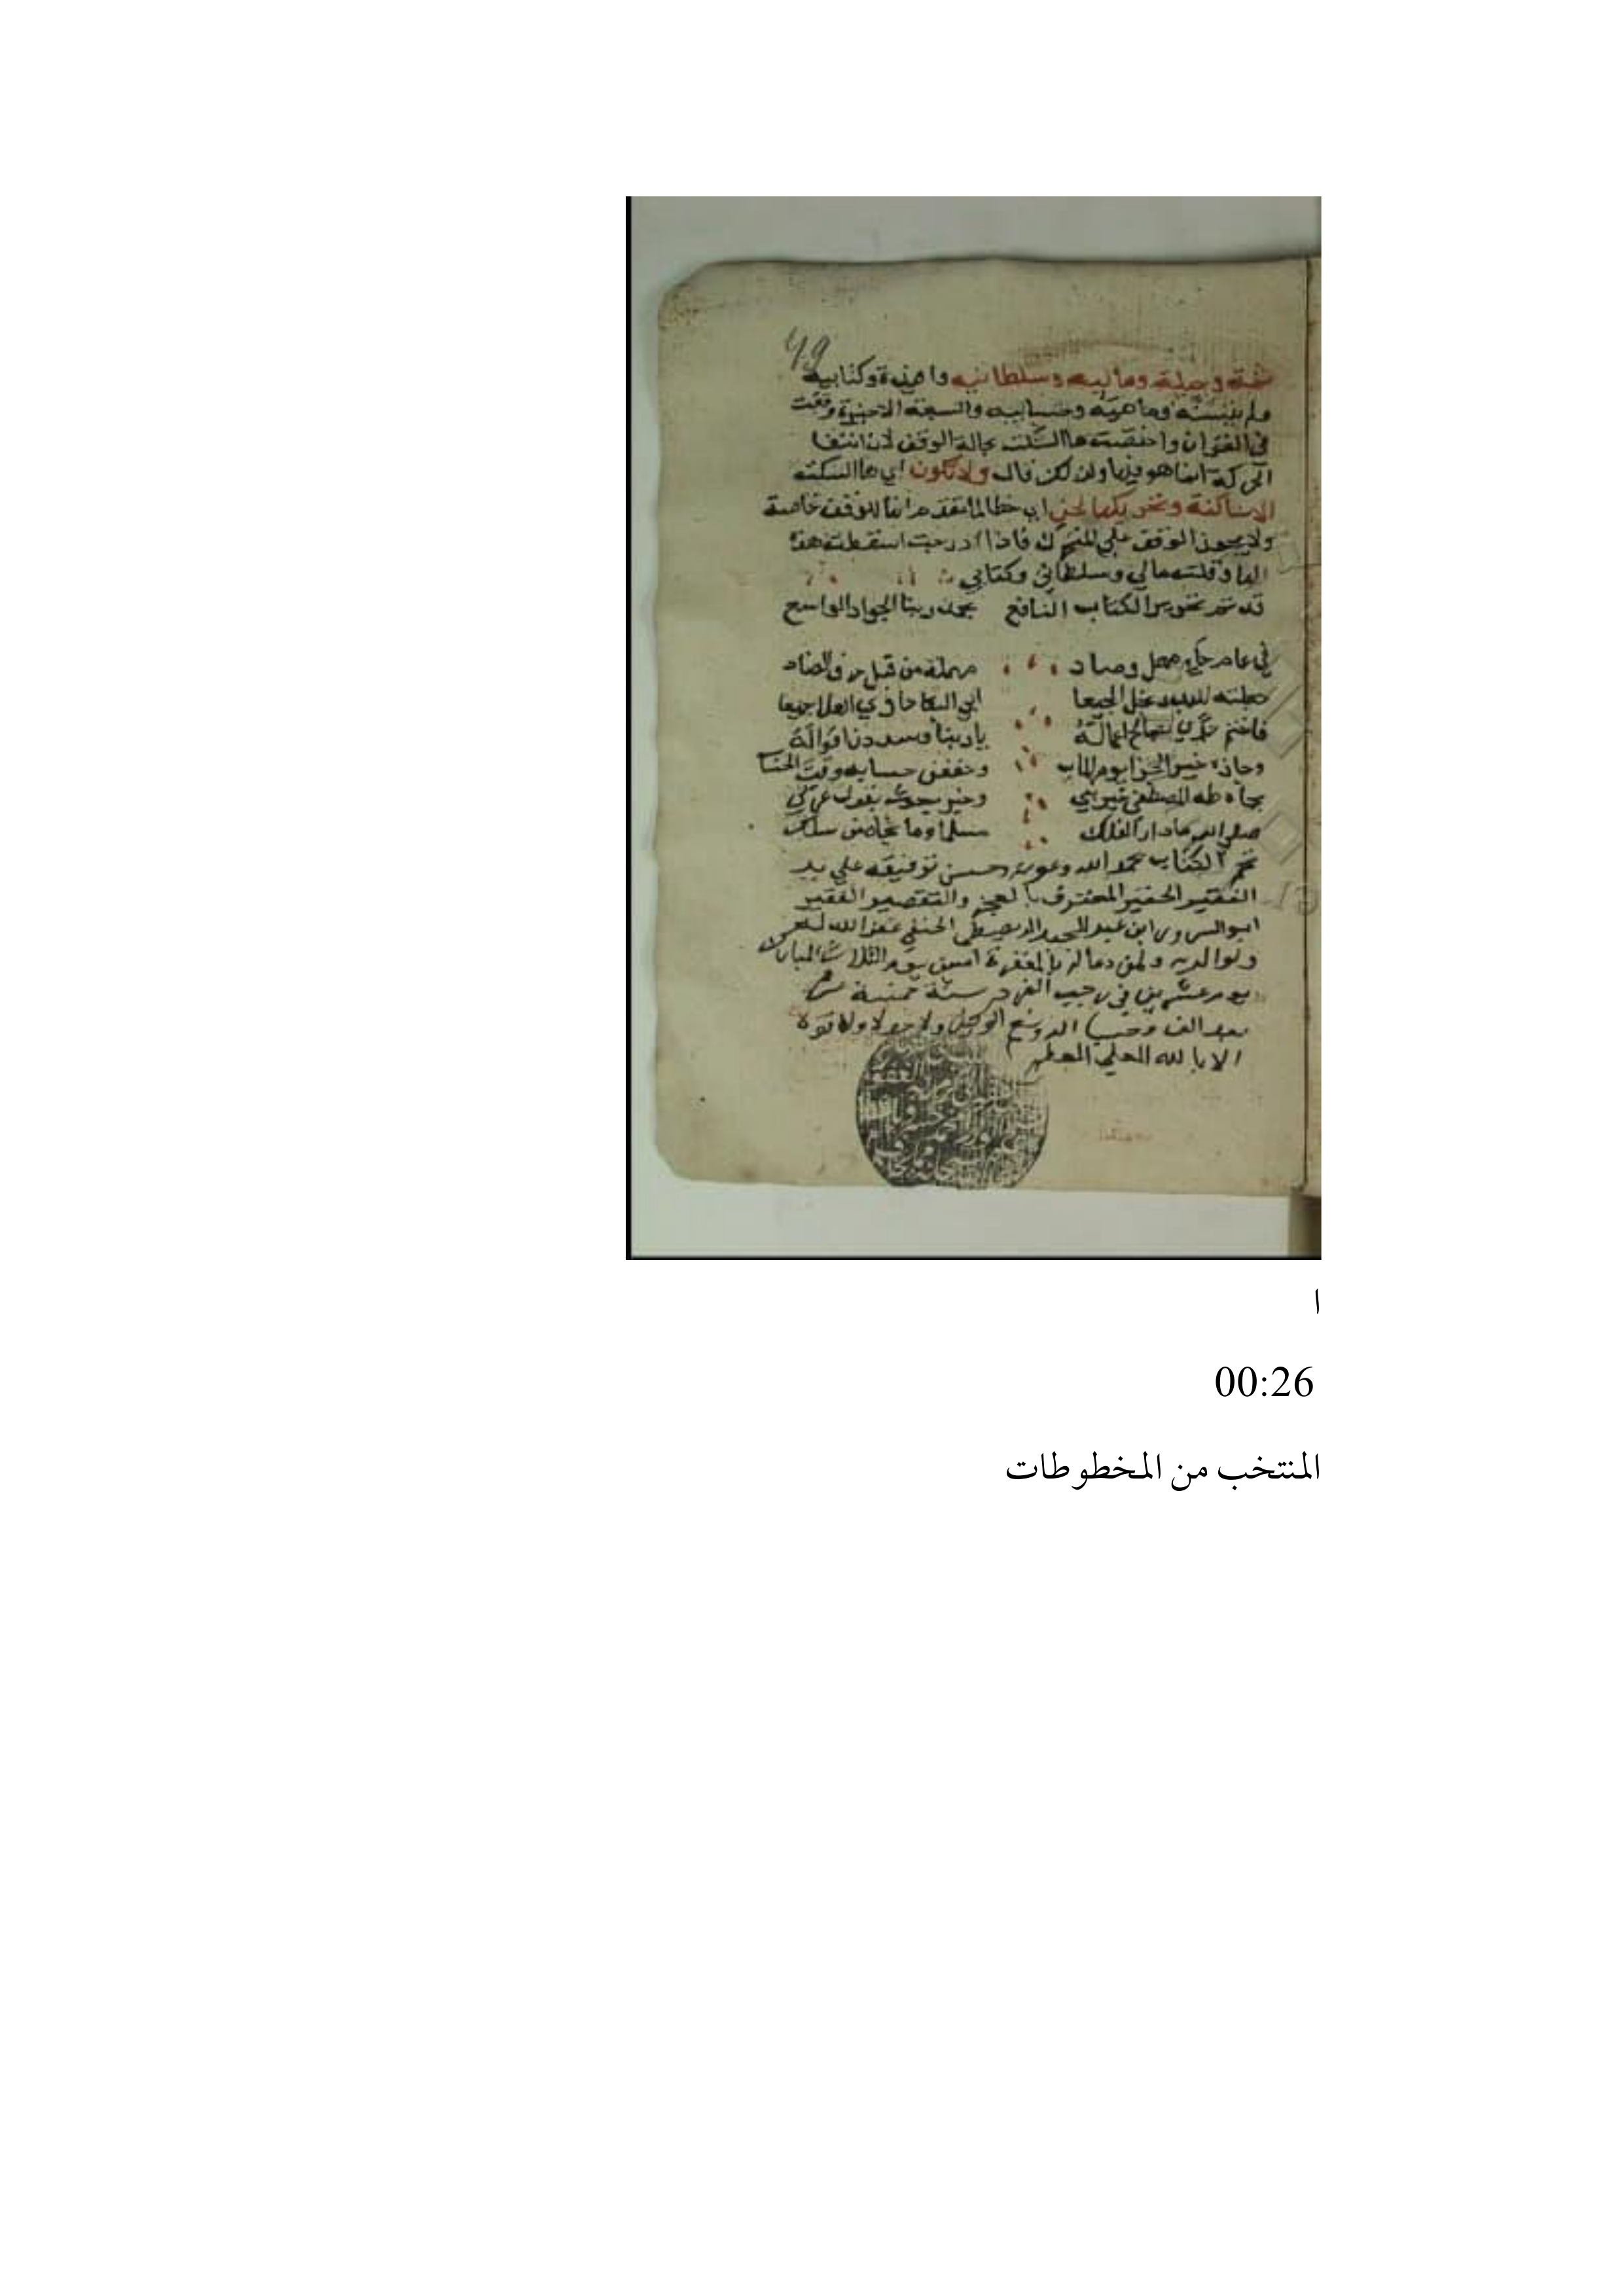 49
وماليه وسلطانيه واحذره وكتابيه
ولم يتسنه وماهيه وحسابيه والسبعة الاخيرة وقعت
في القران واختصت ها السكت بحالة الوقف لان انتفا
الحركة انما هو فيها ولذلك قال ولا تكون اي ها السكته
الا ساكنة وتحريكها لحن اي خطا لما تقدم انها للوقف خاصة
ولا يجوز الوقف علي المتحرك فاذا ادرجت اسقطت هذه
الها وقلت مالي وسلطاني وكتابي
قد تم تحرير الكتاب النافع بحمد ربنا الجواد الواسع
في عام وصاد مهملة من قبل حرف الضاد
ابي البقا حاوي العلا جميعا
فاختم صالح اعماله يا ربنا وسددن اقواله
وجازه خير الجزا يوم الماب وخففن حسابه وقت الحساب
بجاه طه المصطفى خير نبي وخير مبعوث بقول عربي
صلى الله ما دار الفلك مسلما وما نجا من سلك
تم الكتاب بحمد الله وعونه وحسن توفيقه علي يد
الفقير الحقير المعترف بالعجز والتقصير الفقير
ابو السرور ابن عبد الحنفي غفر الله له
ولوالديه ولمن دعا له بالمغفرة امين يوم الثلاث المبارك
يوم عشرين في رجب الفرد سنة
بعد الف وحسبنا الله ونعم الوكيل ولا حولا ولا قوة
الا بالله العلي العظيم
ا
00:26
المنتخب من المخطوطات